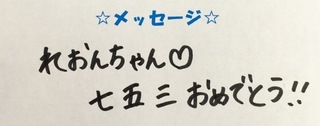 ☆メッセージ☆
れおんちゃん♡
七五三 おめでとう!!